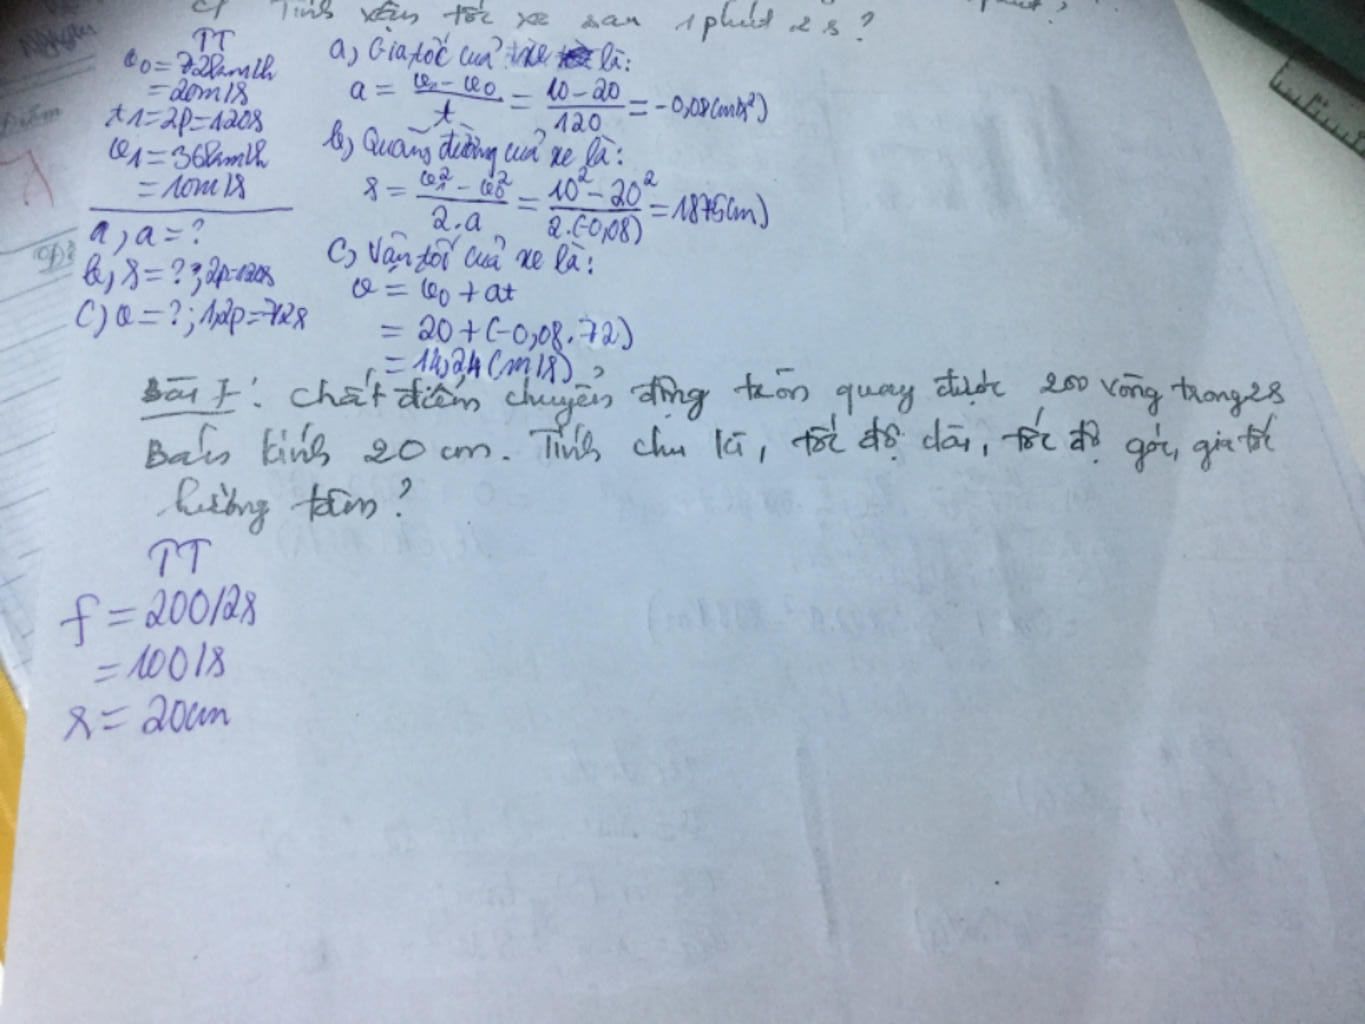 c) Tính vận tốc xe sau 1 phút 2 s?
TT
v0 = 72km/h
= 20m/s
t1 = 2p = 120s
v1 = 36km/h
= 10m/s
a, a = ?
b, s = ?; 2p = 120s
c) v = ?; 1,2p = 72s
a, Gia tốc của xe là:
a = (v1 - v0)/t = (10 - 20)/120 = -0,08(m/s²)
b, Quãng đường của xe là:
s = (v1² - v0²)/(2.a) = (10² - 20²)/(2.(-0,08)) = 1875(m)
c, Vận tốc của xe là:
v = v0 + at
= 20 + (-0,08.72)
= 14,24(m/s)
Bài 7: Chất điểm chuyển động tròn quay được 200 vòng trong 2s
Bán kính 20 cm. Tính chu kì, tốc độ dài, tốc độ góc, gia tốc
hướng tâm?
TT
f = 200/2s
= 100/s
r = 20cm